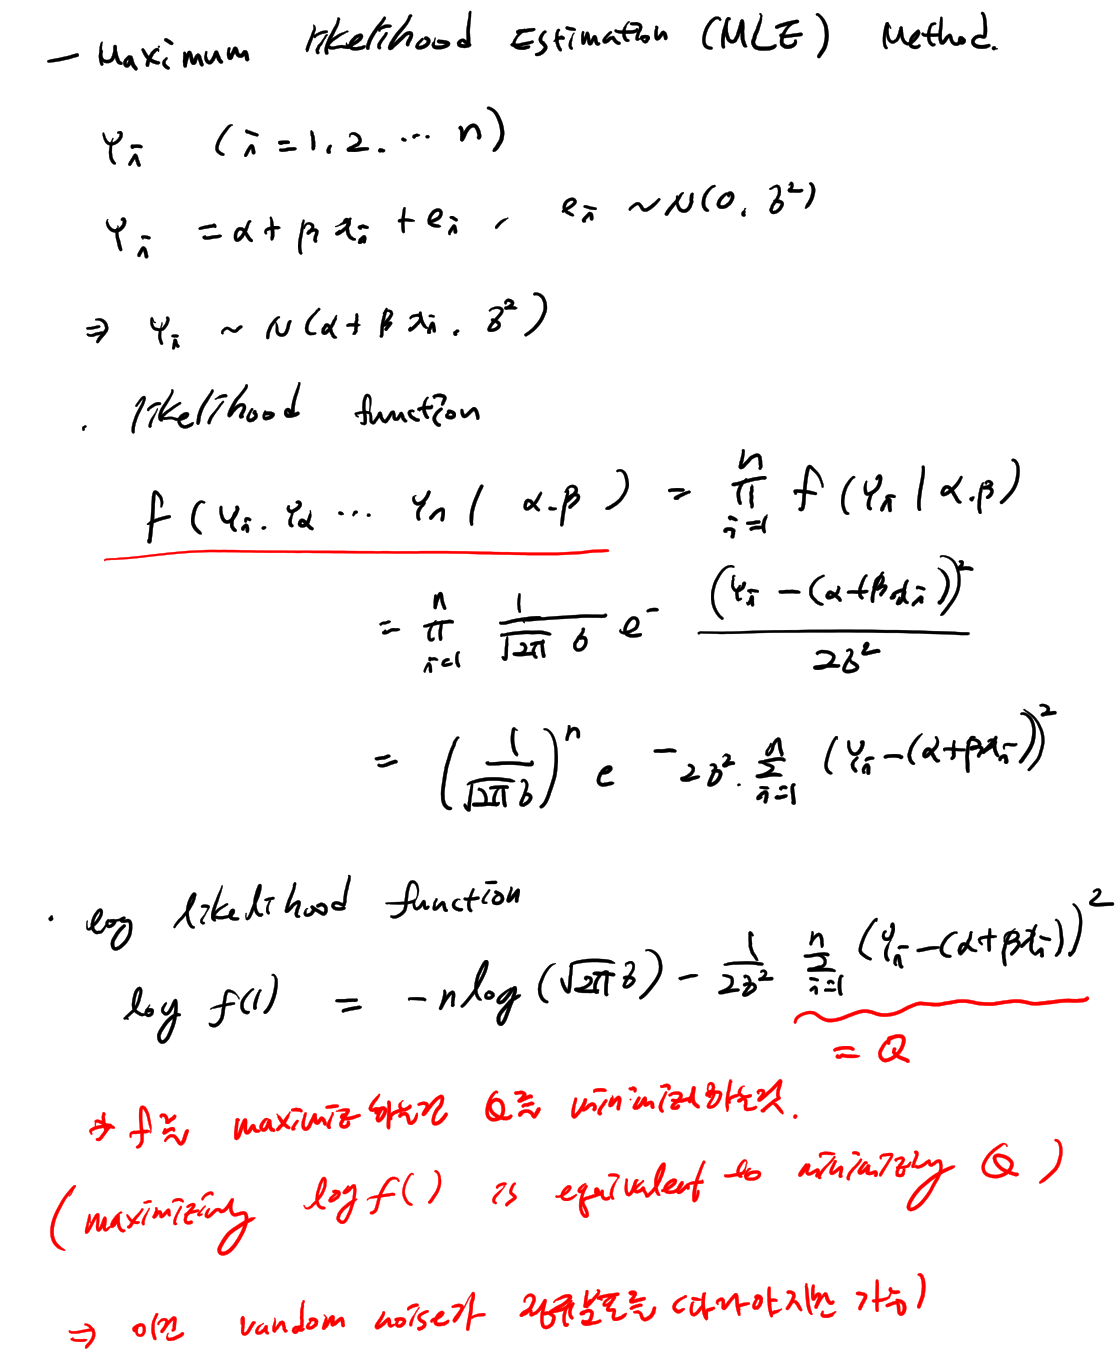 - Maximum likelihood Estimation (MLE) Method.
Yi (i=1, 2, ... n)
Yi = α + β xi + ei , ei ~ N(0, σ²)
⇒ Yi ~ N(α + β xi, σ²)
· likelihood function
f(Yi, Y2 ... Yn | α, β) = ∏_{i=1}^{n} f(Yi | α, β)
= ∏_{i=1}^{n} 1/(√2π σ) e^- (Yi - (α+βxi))² / 2σ²
= (1/(√2π σ))^n e^ - 2σ² · Σ_{i=1}^{n} (Yi - (α+βxi))²
· log likelihood function
log f(|) = -n log (√2π σ) - 1/2σ² Σ_{i=1}^{n} (Yi - (α+βxi))²
= Q
→ f를 maximiz하는건 Q를 minimize하는것.
(maximizing log f( ) is equivalent to minimizing Q)
⇒ 이건 random noise가 정규분포를 (따라야지만 가능)